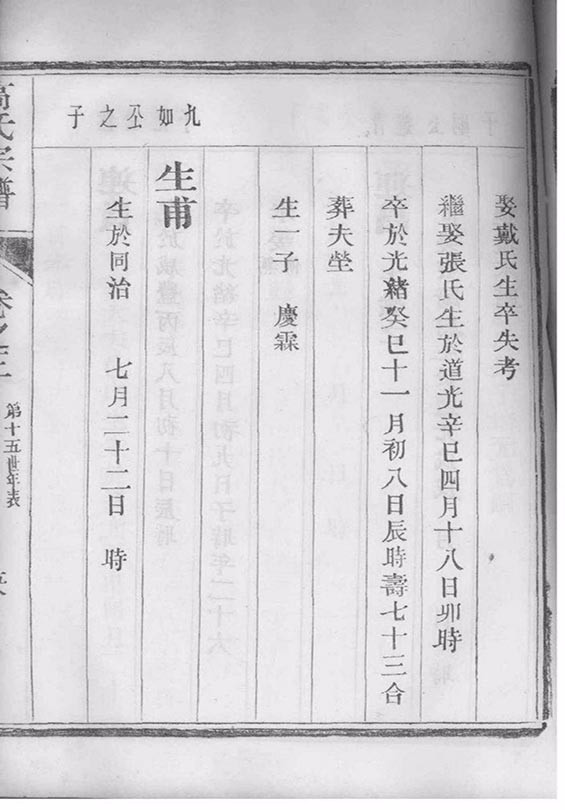 娶戴氏生卒失考
繼娶張氏生於道光辛巳四月十八日卯時
卒於光緒癸巳十一月初八日辰時壽七十三合
葬夫塋
生一子　慶霖
九如公之子
生甫
生於同治　七月二十二日　時
高氏宗譜
卷之三
第十五世年表